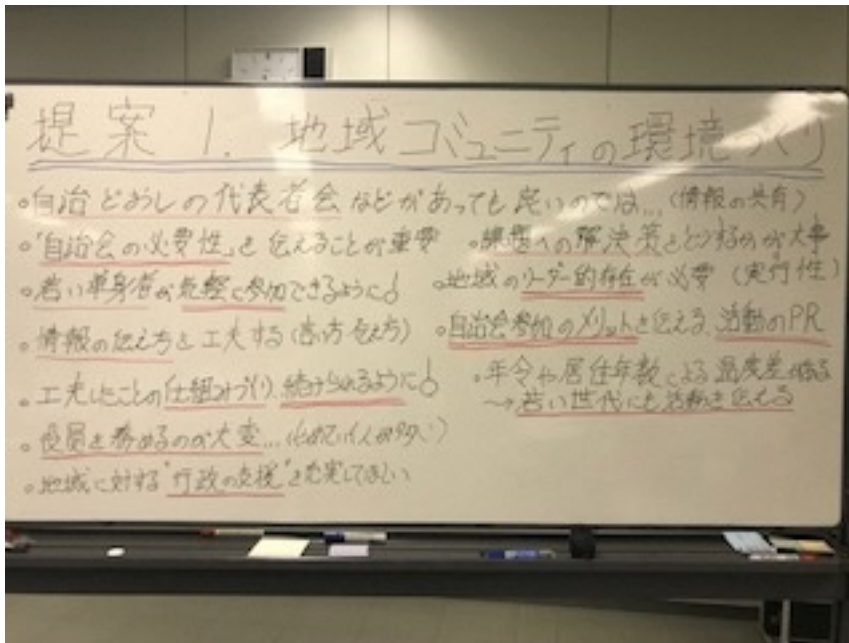 提案 1. 地域コミュニティの環境づくり
・自治どおしの代表者会などがあっても良いのでは…(情報の共有)
・「自治会の必要性」を伝えることが重要
・若い単身者が気軽に参加できるように!
・情報の伝え方を工夫する(言い方 伝え方)
・工夫したことの仕組みづくり、続けられるように!
・役員を務めるのが大変…
・地域に対する"行政の支援"を充実してほしい
・課題への解決策をどうするかが大事
・地域のリーダー的存在が必要 (実行性)
・自治会参加のメリットを伝える、活動のPR
・年令や居住年数による温度差がある
→若い世代にも活動を伝える